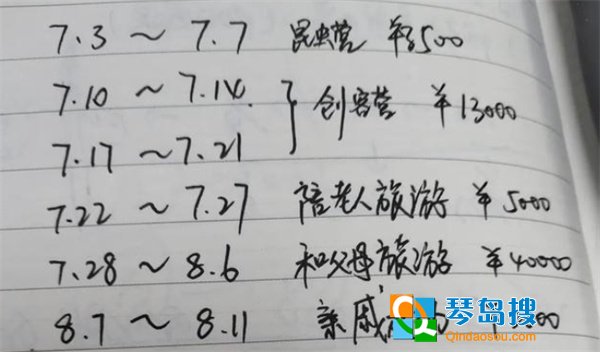 7.3 ~ 7.7 昆虫营 ¥8500
7.10 ~ 7.14 } 创客营 ¥13000
7.17 ~ 7.21
7.22 ~ 7.27 陪老人旅游 ¥5000
7.28 ~ 8.6 和父母旅游 ¥40000
8.7 ~ 8.11 亲戚
琴岛搜
Qindaosou.com